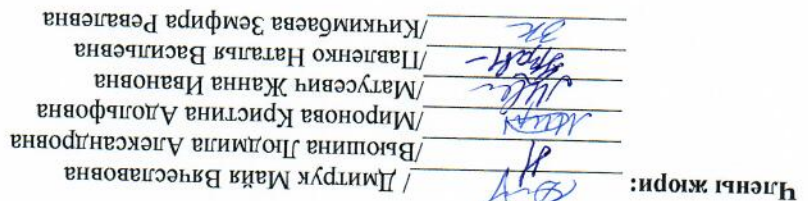 Члены жюри: / Дмитрук Майя Вячеславовна
/Вьюшина Людмила Александровна
/Миронова Кристина Адольфовна
/Матусевич Жанна Ивановна
/Павленко Наталья Васильевна
/Кичкимбаева Земфира Ревалевна